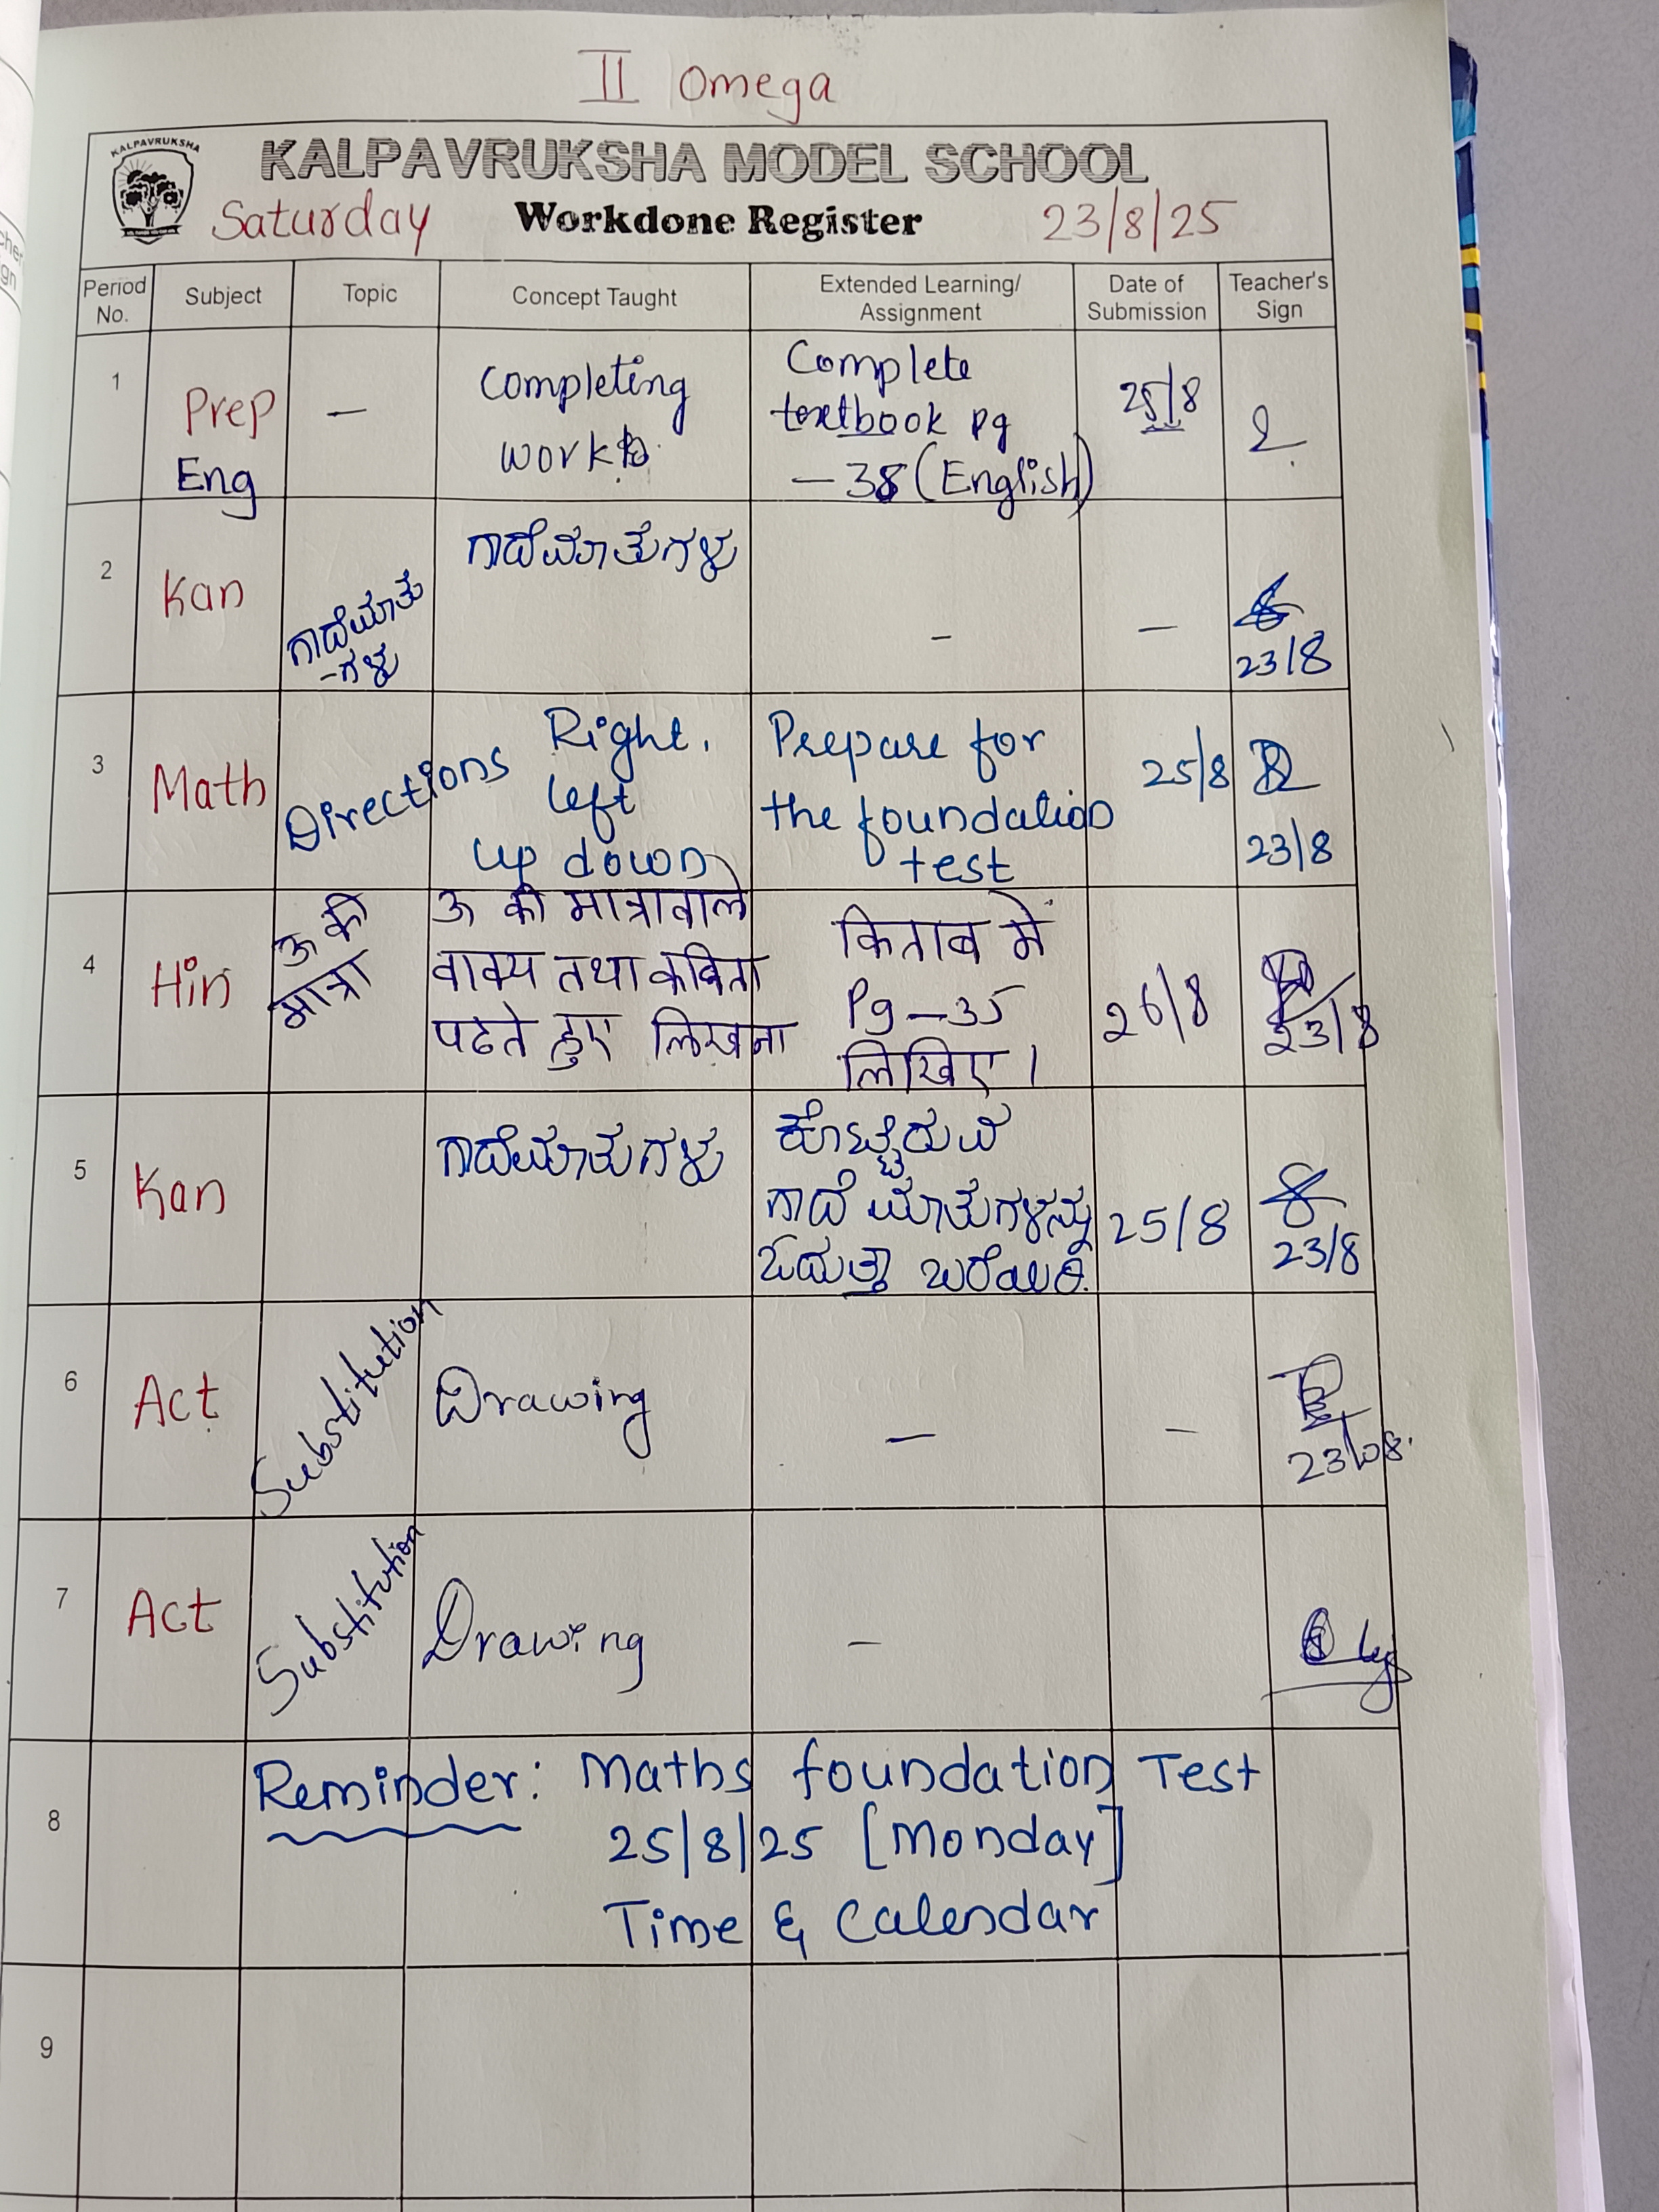 II Omega
KALPAVRUKSHA
KALPAVRUKSHA MODEL SCHOOL
Saturday Workdone Register 23/8/25
Period No. Subject Topic Concept Taught Extended Learning/ Assignment Date of Submission Teacher's Sign
1 Prep Eng — Completing work Complete textbook pg — 38 (English) 25/8
2 Kan ಗಾದೆಮಾತು -ಗಳು ಗಾದೆಮಾತುಗಳು - — 23/8
3 Math Directions Right, left up down Prepare for the foundation test 25/8 23/8
4 Hin ऊ की मात्रा ऊ की मात्रावाले वाक्य तथा कविता पढते हुए लिखना किताब में Pg — 35 लिखिए। 26/8 23/8
5 Kan ಗಾದೆಮಾತುಗಳು ಕೊಟ್ಟಿರುವ ಗಾದೆ ಮಾತುಗಳನ್ನು ಓದುತ್ತಾ ಬರೆಯಿರಿ. 25/8 23/8
6 Act Substitution Drawing — — 23/08.
7 Act Substitution Drawing —
8 Reminder: Maths foundation Test
25/8/25 [Monday]
Time & Calendar
9